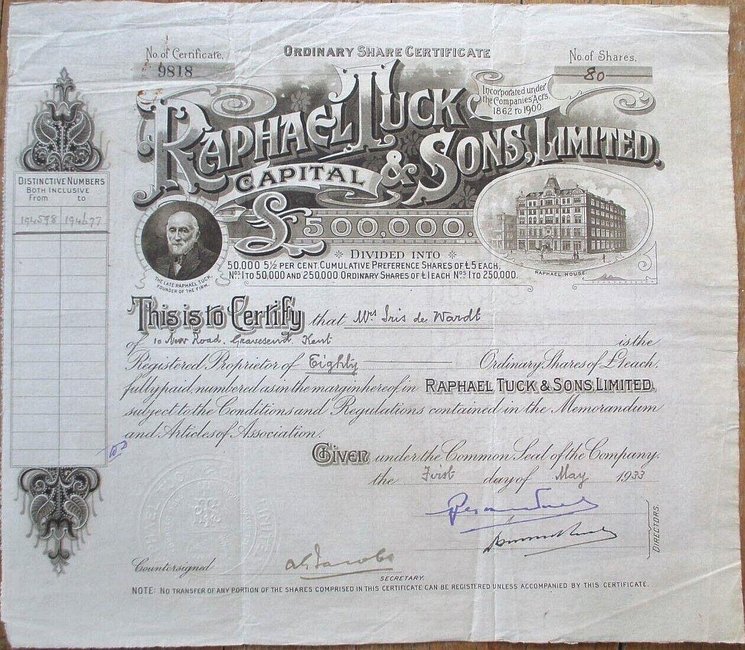 ORDINARY SHARE CERTIFICATE
No. of Certificate.
9818
No. of Shares.
80
RAPHAEL TUCK
& SONS, LIMITED.
Incorporated under
the Companies Acts.
1862 to 1900.
CAPITAL
£500,000.
DIVIDED INTO
50,000 5½ PER CENT CUMULATIVE PREFERENCE SHARES OF £5 EACH,
Nos 1 TO 50,000 AND 250,000 ORDINARY SHARES OF £1 EACH Nos 1 TO 250,000.
THE LATE RAPHAEL TUCK,
FOUNDER OF THE FIRM.
RAPHAEL HOUSE
DISTINCTIVE NUMBERS
BOTH INCLUSIVE
From to
194598 194677
This is to Certify that Mrs Iris de Wardt
of 10 New Road, Gravesend Kent is the
Registered Proprietor of Eighty Ordinary Shares of £1 each.
fully paid, numbered as in the margin hereof in RAPHAEL TUCK & SONS, LIMITED.
subject to the Conditions and Regulations contained in the Memorandum
and Articles of Association.
Given under the Common Seal of the Company.
the First day of May 1933
DIRECTORS.
Countersigned
SECRETARY.
NOTE: NO TRANSFER OF ANY PORTION OF THE SHARES COMPRISED IN THIS CERTIFICATE CAN BE REGISTERED UNLESS ACCOMPANIED BY THIS CERTIFICATE.